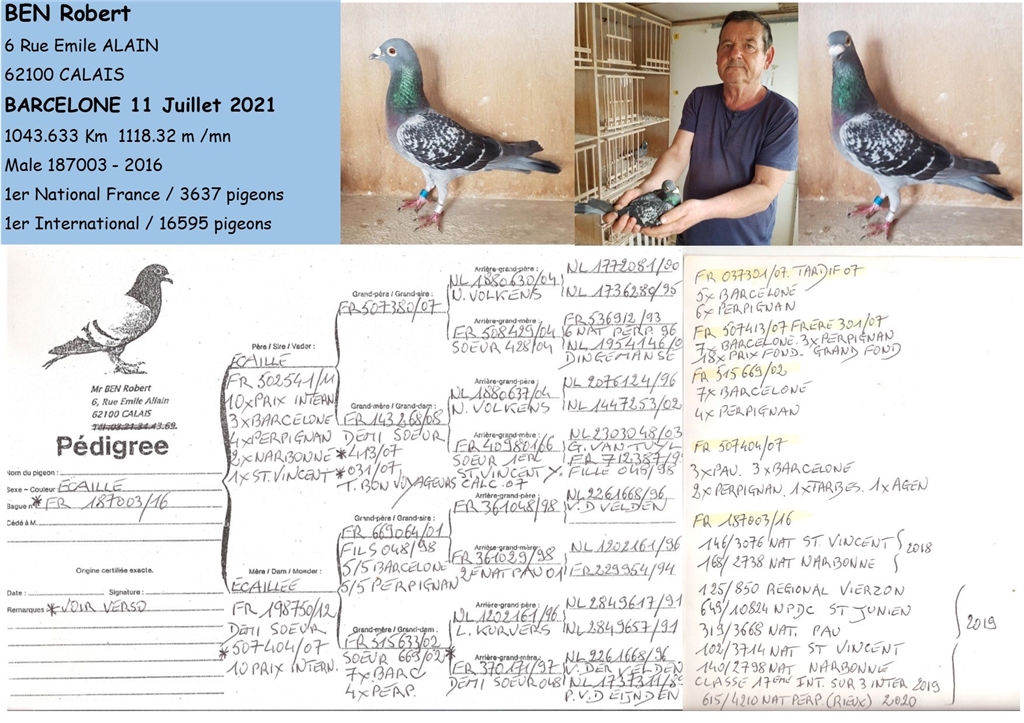 BEN Robert
6 Rue Emile ALAIN
62100 CALAIS
BARCELONE 11 Juillet 2021
1043.633 Km 1118.32 m /mn
Male 187003 - 2016
1er National France / 3637 pigeons
1er International / 16595 pigeons
Mr BEN Robert
6, Rue Emile Allain
62100 CALAIS
Pédigree
Nom du pigeon :
Sexe - Couleur ECAILLE
Bague n° *FR 187003/16
Cédé à M.
Origine certifiée exacte.
Date : Signature :
Remarques *VOIR VERSO
Père / Sire / Vader :
ECAILLE
FR 502541/11
10 x PRIX INTERN
3 x BARCELONE
4 x PERPIGNAN
2 x NARBONNE
1 x ST. VINCENT
Mère / Dam / Moeder :
ECAILLEE
FR 198750/12
DEMI SOEUR
*507404/07
10 PRIX INTERN.
Grand-père / Grand-sire :
FR 507380/07
Grand-mère / Grand-dam :
FR 143268/08
DEMI SOEUR
*413/07
*031/07
T. BON VOYAGEURS CALC. 07
Grand-père / Grand-sire :
FR 669064/01
FILS 048/98
5/5 BARCELONE
5/5 PERPIGNAN
Grand-mère / Grand-dam :
FR 515633/02
SOEUR 669/02*
7 x BARC
4 x PERP.
Arrière-grand-père :
NL 1880630/04
N. VOLKENS
Arrière-grand-mère :
FR 508429/04
SOEUR 428/04
Arrière-grand-père :
NL 1880637/04
N. VOLKENS
Arrière-grand-mère :
FR 409801/06
SOEUR 1ER
ST. VINCENT
Arrière-grand-père :
FR 361048/98
Arrière-grand-mère :
FR 361029/98
2E NAT PAU 01
Arrière-grand-père :
NL 1202161/96
L. KURVERS
Arrière-grand-mère :
FR 370171/97
DEMI SOEUR 048
NL 1772081/00
NL 1736280/95
FR 536912/93
6 NAT PERP. 96
NL 1954146/0
DINGEMANSE
NL 2076124/96
NL 1447253/02
NL 2303048/03
G. VAN TUYL
FR 712387/9
FILLE 045/98
NL 2261668/96
V.D VELDEN
NL 1202161/96
FR 229954/94
NL 2849617/91
NL 2849657/91
NL 2261668/96
V. DER VELDEN
NL 1737311/89
P.V.D EIJNDEN
FR 037301/07. TARDIF 07
5 x BARCELONE
6 x PERPIGNAN
FR 507413/07 FRÈRE 301/07
7 x BARCELONE. 3 x PERPIGNAN
18 x PRIX FOND - GRAND FOND
FR 515669/02
7 x BARCELONE
4 x PERPIGNAN
FR 507404/07
3 x PAU. 3 x BARCELONE
2 x PERPIGNAN. 1 x TARBES. 1 x AGEN
FR 187003/16
146/3076 NAT ST. VINCENT
168/2738 NAT NARBONNE
2018
125/850 REGIONAL VIERZON
649/10824 NPDC ST JUNIEN
319/3668 NAT. PAU
102/3714 NAT ST VINCENT
140/2798 NAT NARBONNE
2019
CLASSE 17ème INT. SUR 3 INTER 2019
615/4210 NAT PERP. (RIEUX) 2020